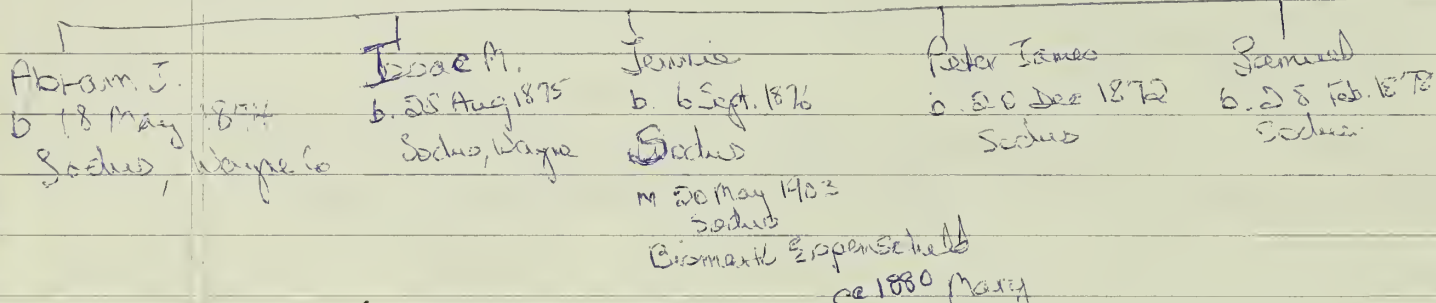 Abram. J.
b 18 May 1874
Sodus, Wayne Co
Isaac M.
b. 25 Aug 1875
Sodus, Wayne
Jennie
b. 6 Sept. 1876
Sodus
m 20 May 1903
Sodus
Bismark Espenscheld
ca 1880 Mary
Peter James
b. 20 Dec 1872
Sodus
Samuel
b. 28 Feb. 1878
Sodus